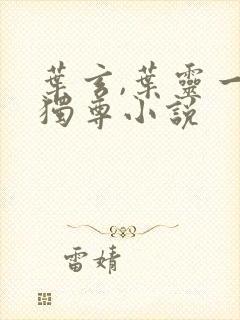 葉玄,葉靈一
獨尊小說
雷婧